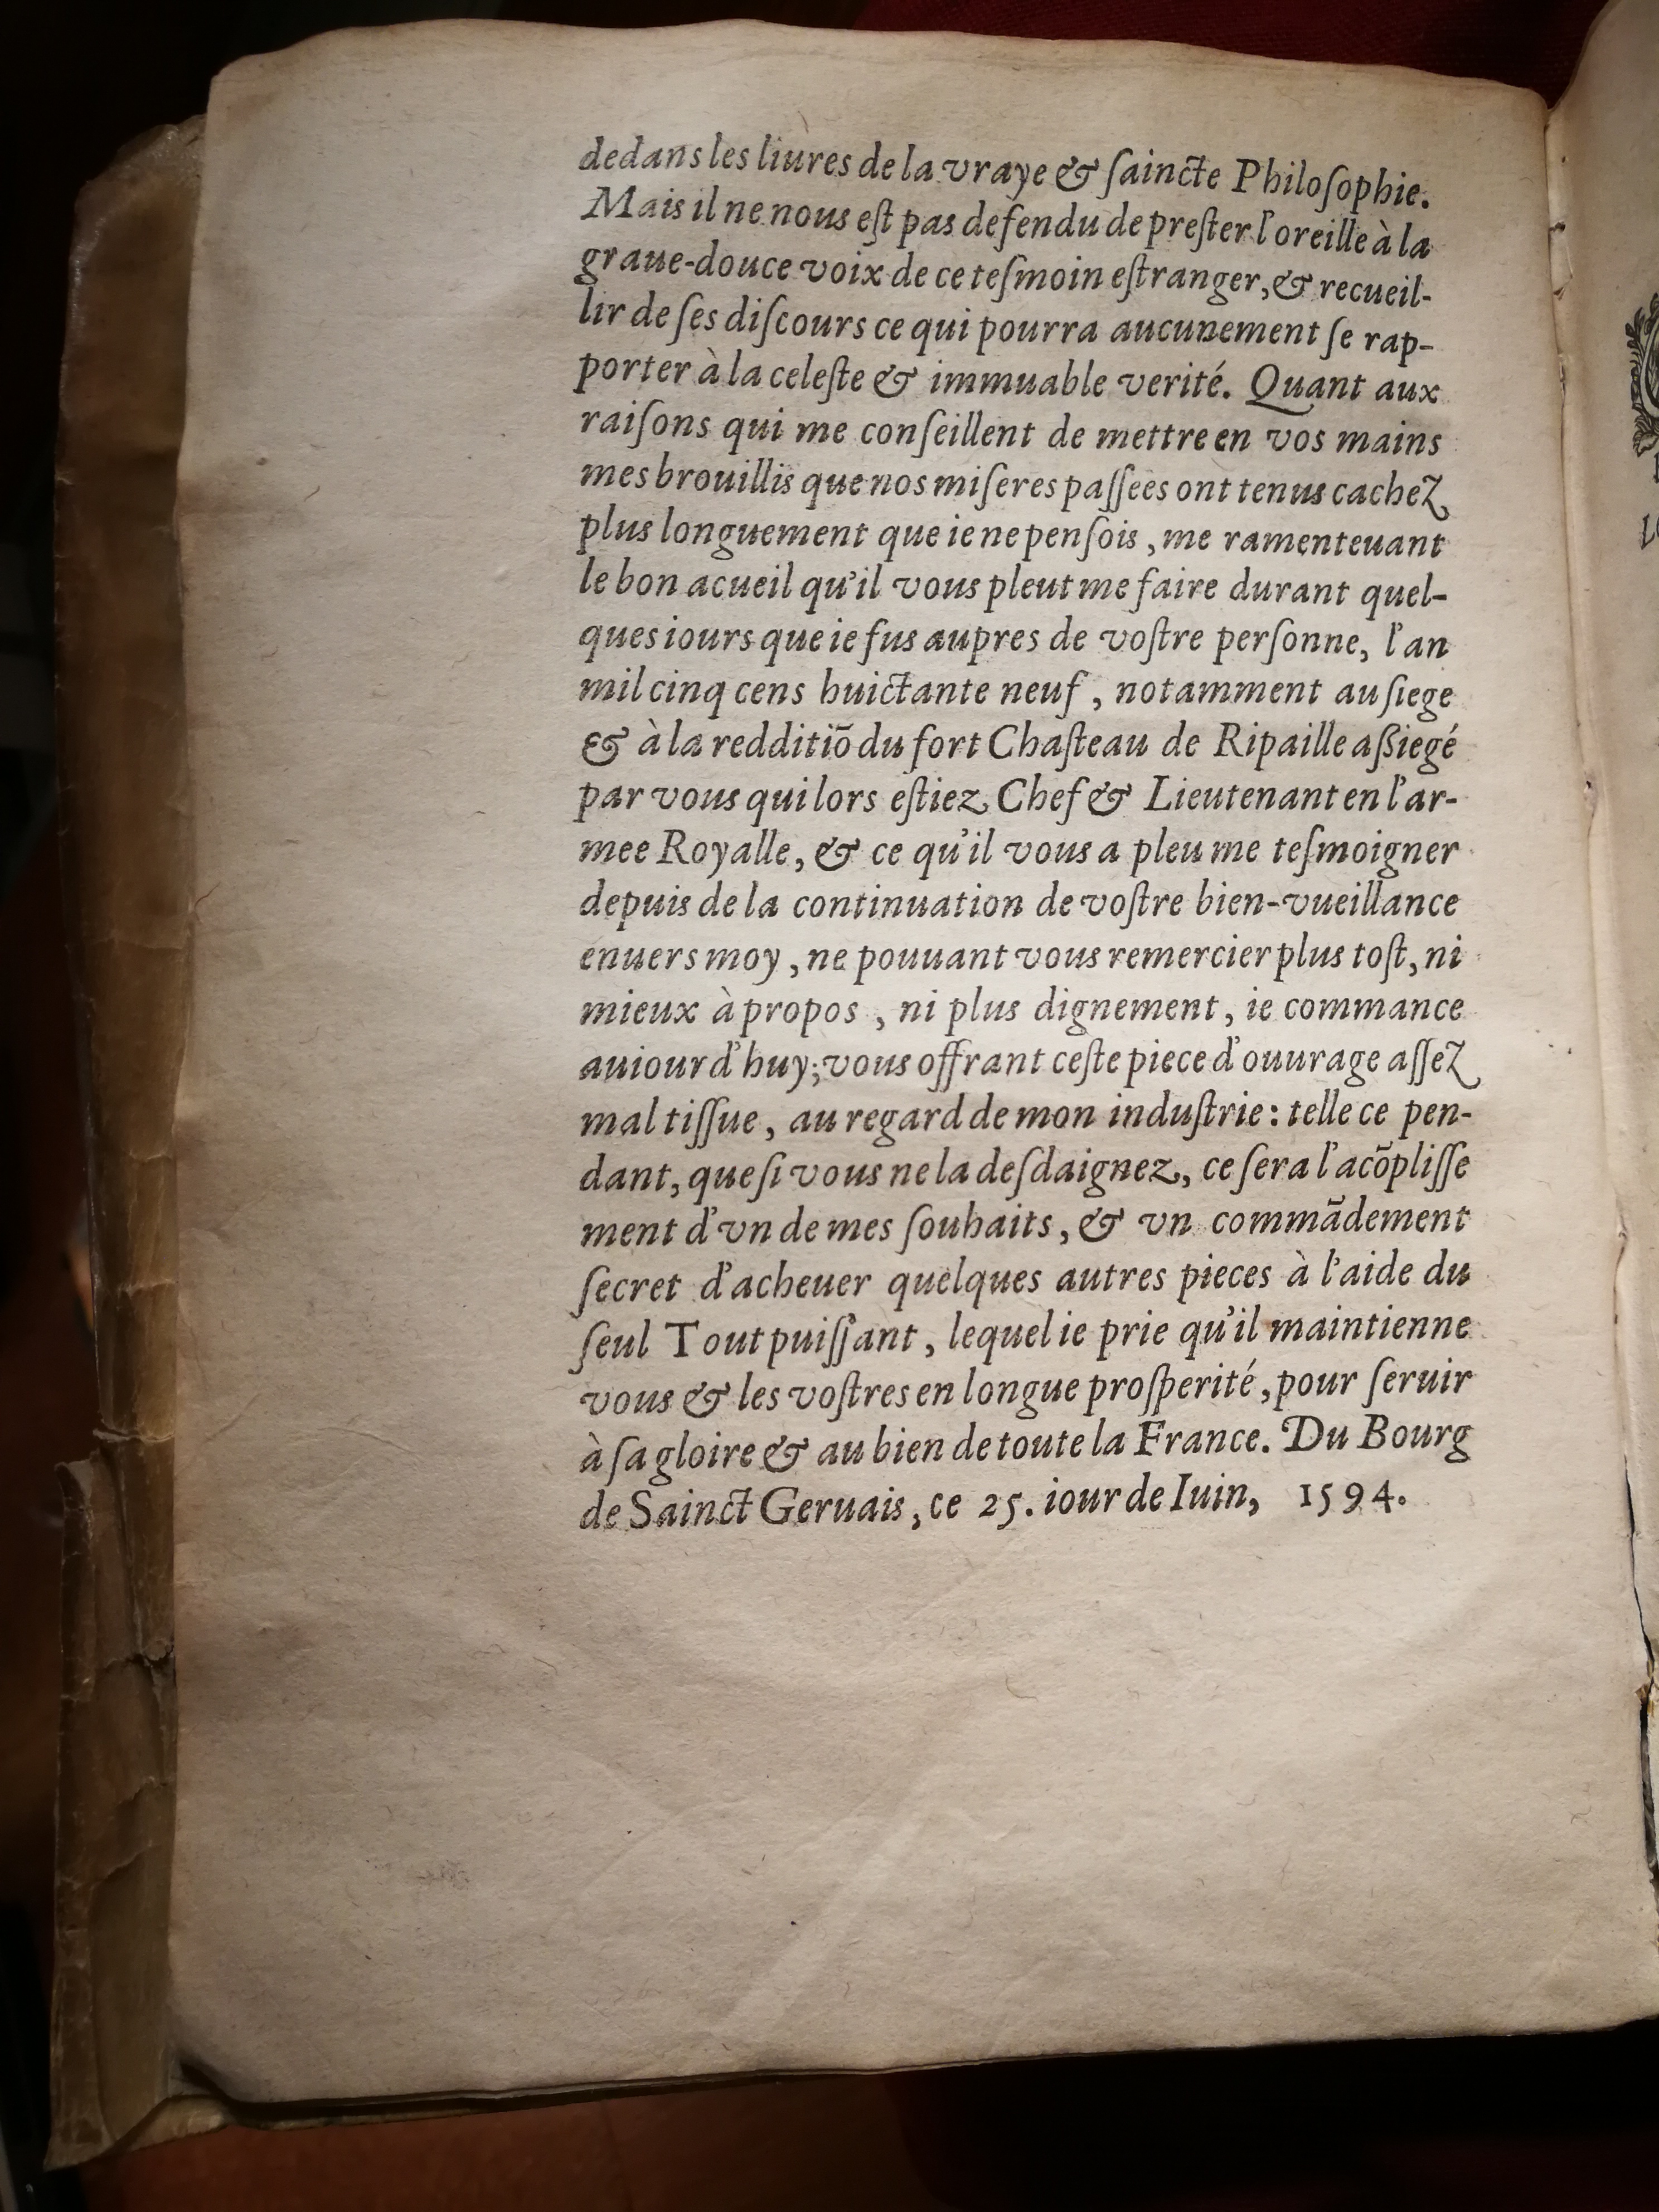 dedans les liures de la vraye & ſaincte Philoſophie.
Mais il ne nous eſt pas defendu de preſter l'oreille à la
graue-douce voix de ce teſmoin eſtranger, & recueil-
lir de ſes diſcours ce qui pourra aucunement ſe rap-
porter à la celeſte & immuable verité. Quant aux
raiſons qui me conſeillent de mettre en vos mains
mes brouillis que nos miſeres paſſees ont tenus cachez
plus longuement que ie ne penſois, me ramenteuant
le bon acueil qu'il vous pleut me faire durant quel-
ques iours que ie fus aupres de voſtre perſonne, l'an
mil cinq cens huictante neuf, notamment au ſiege
& à la redditiõ du fort Chaſteau de Ripaille aßiegé
par vous qui lors eſtiez Chef & Lieutenant en l'ar-
mee Royalle, & ce qu'il vous a pleu me teſmoigner
depuis de la continuation de voſtre bien-vueillance
enuers moy, ne pouuant vous remercier plus toſt, ni
mieux à propos, ni plus dignement, ie commance
auiourd'huy; vous offrant ceſte piece d'ouurage aſſez
mal tiſſue, au regard de mon induſtrie: telle ce pen-
dant, que ſi vous ne la deſdaignez, ce ſera l'acõpliſſe
ment d'vn de mes ſouhaits, & vn commãdement
ſecret d'acheuer quelques autres pieces à l'aide du
ſeul Tout puiſſant, lequel ie prie qu'il maintienne
vous & les voſtres en longue proſperité, pour ſeruir
à ſa gloire & au bien de toute la France. Du Bourg
de Sainct Geruais, ce 25. iour de Iuin, 1594.